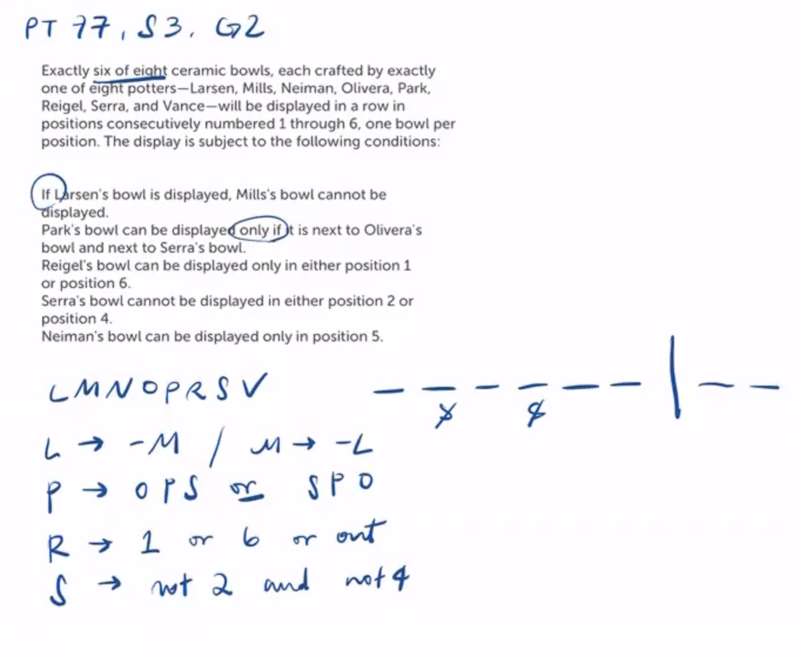 PT 77, S3, G2
Exactly six of eight ceramic bowls, each crafted by exactly
one of eight potters—Larsen, Mills, Neiman, Olivera, Park,
Reigel, Serra, and Vance—will be displayed in a row in
positions consecutively numbered 1 through 6, one bowl per
position. The display is subject to the following conditions:
If Larsen's bowl is displayed, Mills's bowl cannot be
displayed.
Park's bowl can be displayed only if it is next to Olivera's
bowl and next to Serra's bowl.
Reigel's bowl can be displayed only in either position 1
or position 6.
Serra's bowl cannot be displayed in either position 2 or
position 4.
Neiman's bowl can be displayed only in position 5.
LMNOPRSV
S S
L → -M / M → -L
P → OPS or SPO
R → 1 or 6 or out
S → not 2 and not 4